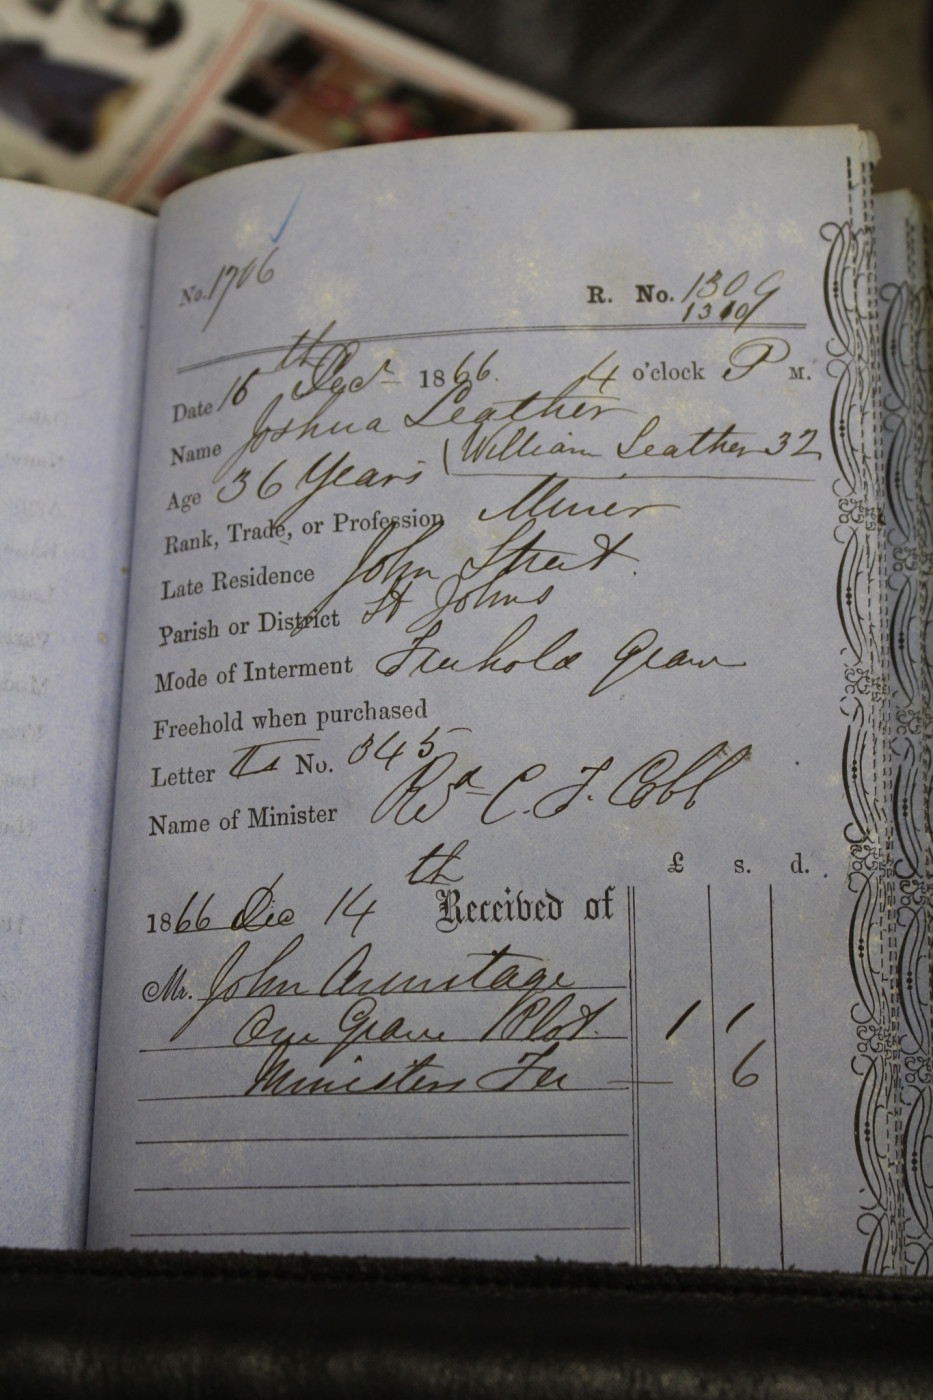 No. 1706
R. No. 1309
1310
Date 16th Decr 1866. 4 o'clock P M.
Name Joshua Leather
Age 36 Years (William Leather 32
Rank, Trade, or Profession Miner
Late Residence John Street.
Parish or District St Johns
Mode of Interment Freehold Grave
Freehold when purchased
Letter No. 345
Name of Minister Revd C. F. Cobb
£ s. d.
1866 Dec 14th Received of
Mr. John Armitage
One Grave Plot. 1 1
Ministers Fee — 6